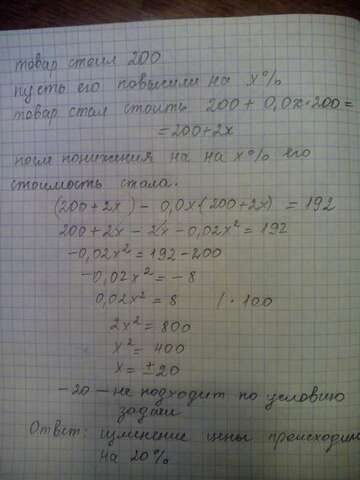 товар стоил 200
пусть его повысили на x%
товар стал стоить 200 + 0,0x·200 =
= 200+2x
посли понижения на на x% его
стоимость стала.
(200+2x) - 0,0x(200+2x) = 192
200+2x - 2x - 0,02x² = 192
-0,02x² = 192-200
-0,02x² = -8
0,02x² = 8 / · 100
2x² = 800
x² = 400
x = ±20
-20 - не подходит по условию
задачи
Ответ: изменение цены происходит
на 20%